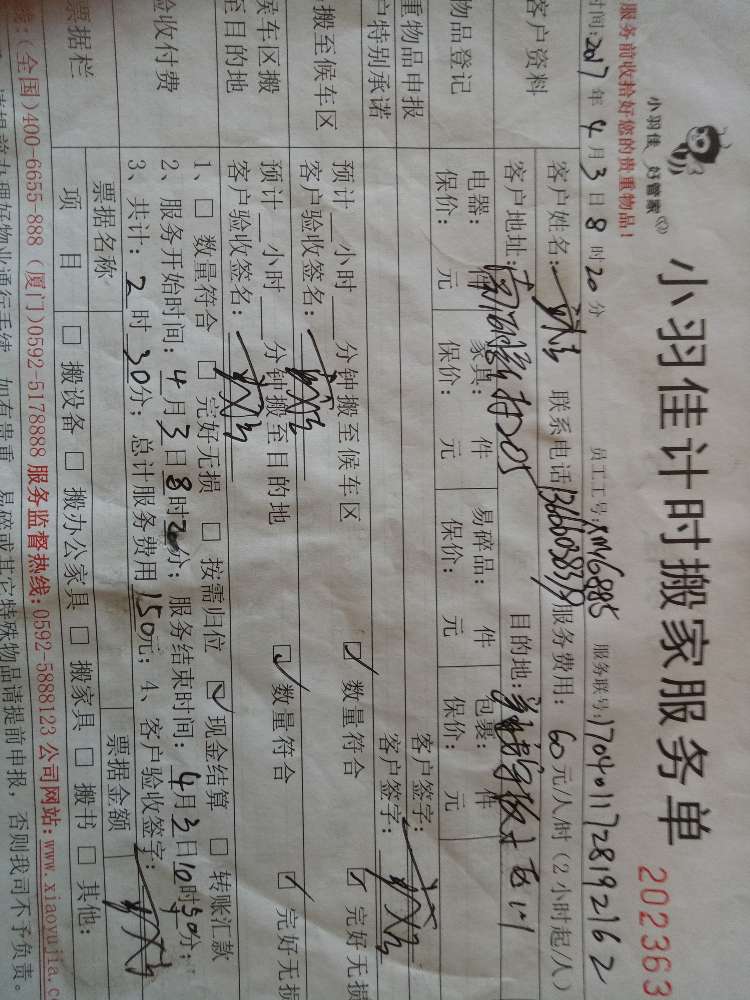 小羽佳 好管家
小羽佳计时搬家服务单
202363
服务前收拾好您的贵重物品！
时间：2017年4月3日8时20分 员工工号：XM6885 服务联号：1704011728192162
客户资料
客户姓名： 联系电话 服务费用：60元/人/时（2小时起/人）
客户地址： 目的地：
物品登记
电器： 件 家具： 件 易碎品： 件 包裹： 件
保价： 元 保价： 元 保价： 元 保价： 元
重物品申报 客户签字：
户特别承诺 客户签字：
搬至候车区
预计 小时 分钟搬至候车区 ☑ 数量符合 ☑ 完好无损
客户验收签名：
候车区搬
至目的地
预计 小时 分钟搬至目的地 ☑ 数量符合 ☑ 完好无损
客户验收签名：
验收付费
1、□ 数量符合 □ 完好无损 □ 按需归位 ☑ 现金结算 □ 转账汇款
2、服务开始时间：4月3日8时20分；服务结束时间：4月3日10时50分；
3、共计：2时30分；总计服务费用150元；4、客户验收签字：
票据栏
票据名称 票据金额
项目 □ 搬设备 □ 搬办公家具 □ 搬家具 □ 搬书 □ 其他：
线：(全国)400-6655-888 (厦门)0592-5178888 服务监督热线：0592-5888123 公司网站：www.xiaoyujia.c
请提前办理好物业通行手续，如有贵重、易碎或其它特殊物品请提前申报，否则我司不予负责。